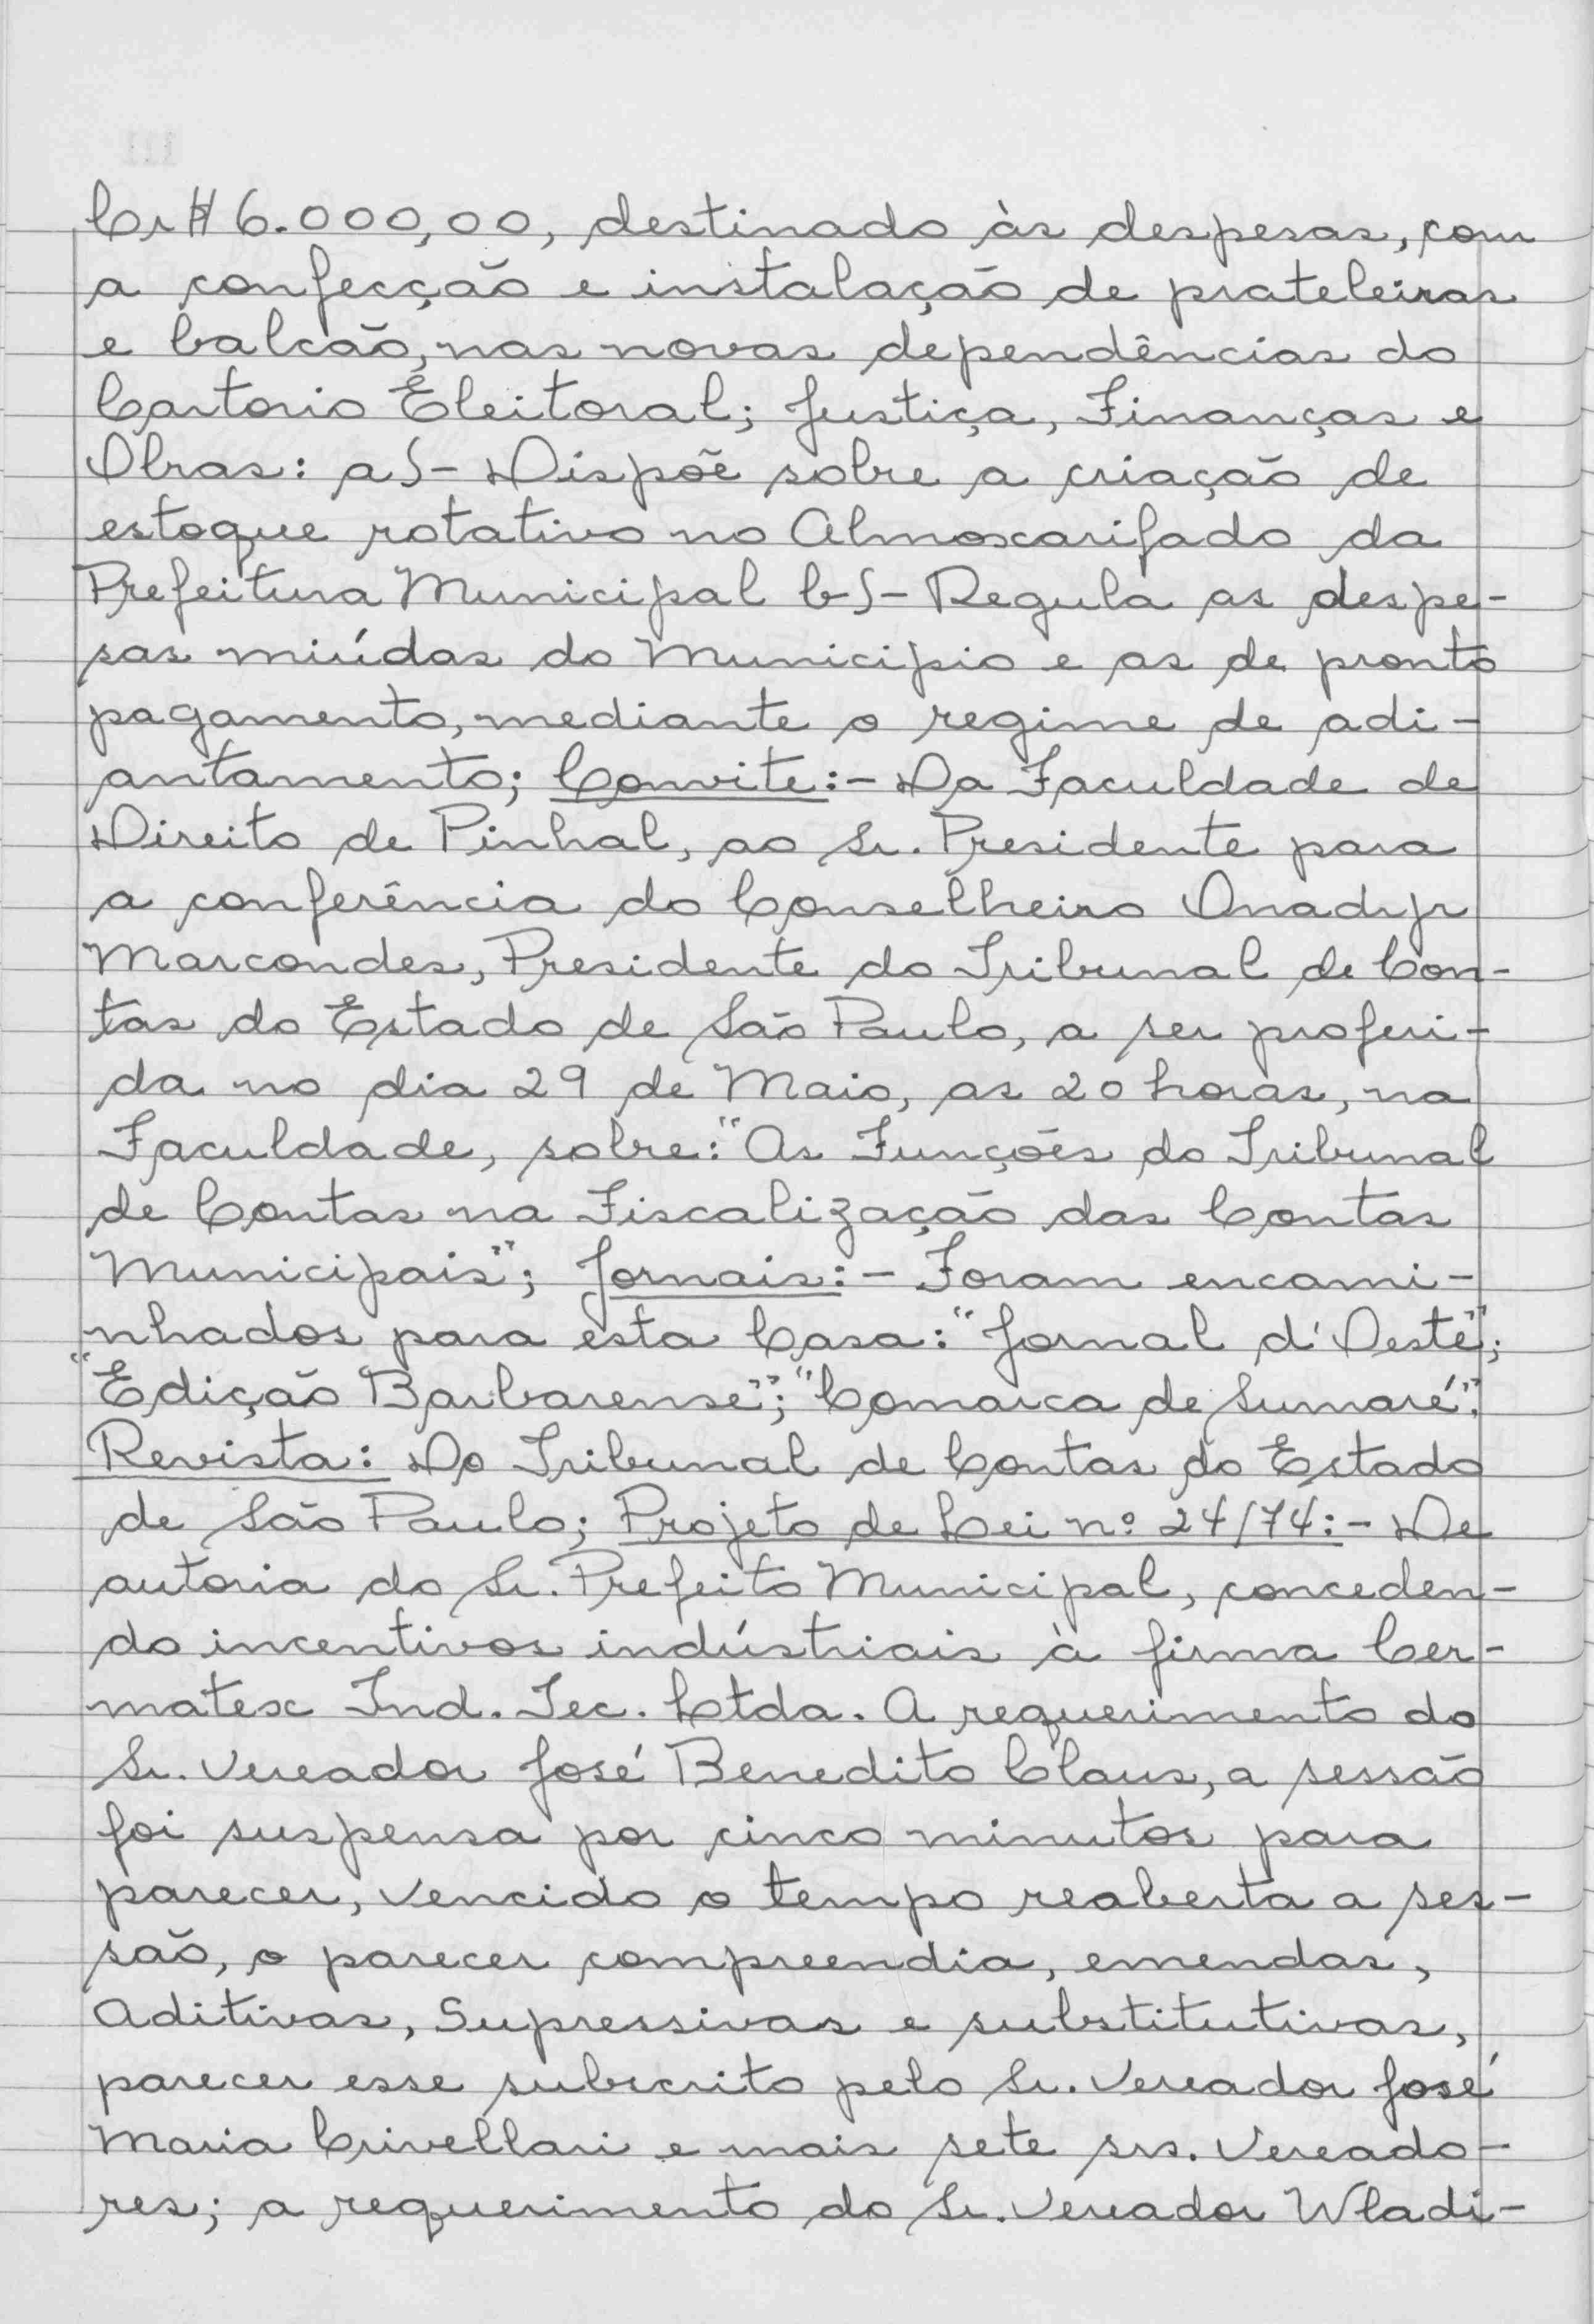 Cr$ 6.000,00, destinado às despesas, com
a confecção e instalação de prateleiras
e balcão, nas novas dependências do
Cartorio Eleitoral; Justiça, Finanças e
Obras: a)- Dispõe sobre a criação de
estoque rotativo no Almoxarifado da
Prefeitura Municipal b-)- Regula as despe-
sas miúdas do Municipio e as de pronto
pagamento, mediante o regime de adi-
antamento; Convite:- Da Faculdade de
Direito de Pinhal, ao Sr. Presidente para
a conferência do Conselheiro Onadyr
Marcondes, Presidente do Tribunal de Con-
tas do Estado de São Paulo, a ser proferi-
da no dia 29 de Maio, as 20 horas, na
Faculdade, sobre: "As Funções do Tribunal
de Contas na Fiscalização das Contas
Municipais"; Jornais:- Foram encami-
nhados para esta Casa: "Jornal d'Oeste";
"Edição Barbarense"; "Comarca de Sumaré".
Revista: Do Tribunal de Contas do Estado
de São Paulo; Projeto de Lei nº 24/74:- De
autoria do Sr. Prefeito Municipal, conceden-
do incentivos indústriais à firma Cer-
matex Ind. Tec. Ltda. A requerimento do
Sr. Vereador José Benedito Claus, a sessão
foi suspensa por cinco minutos para
parecer, vencido o tempo reaberta a ses-
são, o parecer compreendia, emendas,
Aditivas, Supressivas e substitutivas,
parecer esse subscrito pelo Sr. Vereador José
Maria Crivellari e mais sete srs. Vereado-
res; a requerimento do Sr. Vereador Wladi-